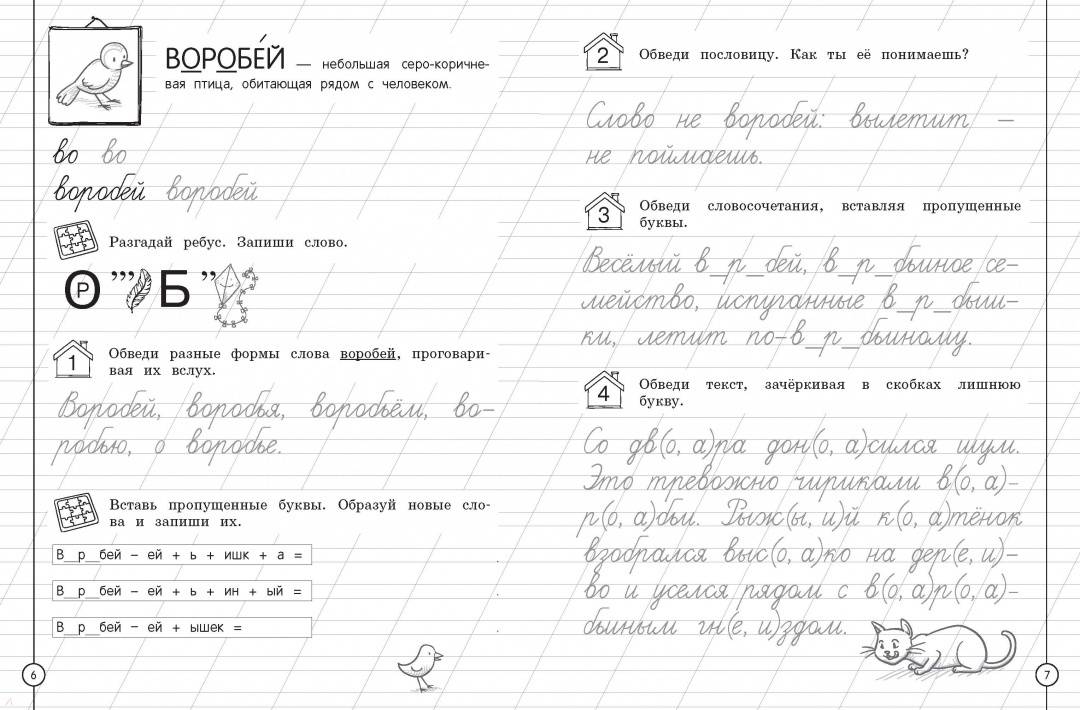 ВОРОБЕ́Й — небольшая серо-коричне-
вая птица, обитающая рядом с человеком.
во во
воробей воробей
Разгадай ребус. Запиши слово.
О Р ,,, Б ,,
1 Обведи разные формы слова воробей, проговари-
вая их вслух.
Воробей, воробья, воробьём, во-
робью, о воробье.
Вставь пропущенные буквы. Образуй новые сло-
ва и запиши их.
В__р__бей – ей + ь + ишк + а =
В__р__бей – ей + ь + ин + ый =
В__р__бей – ей + ышек =
6
2 Обведи пословицу. Как ты её понимаешь?
Слово не воробей: вылетит —
не поймаешь.
3 Обведи словосочетания, вставляя пропущенные
буквы.
Весёлый в_р_бей, в_р_бьиное се-
мейство, испуганные в_р_быш-
ки, летит по-в_р_бьиному.
4 Обведи текст, зачёркивая в скобках лишнюю
букву.
Со дв(о, а)ра дон(о, а)сился шум.
Это тревожно чирикали в(о, а)-
р(о, а)бьи. Рыж(ы, и)й к(о, а)тёнок
взобрался выс(о, а)ко на дер(е, и)-
во и уселся рядом с в(о, а)р(о, а)-
бьиным гн(е, и)здом.
7